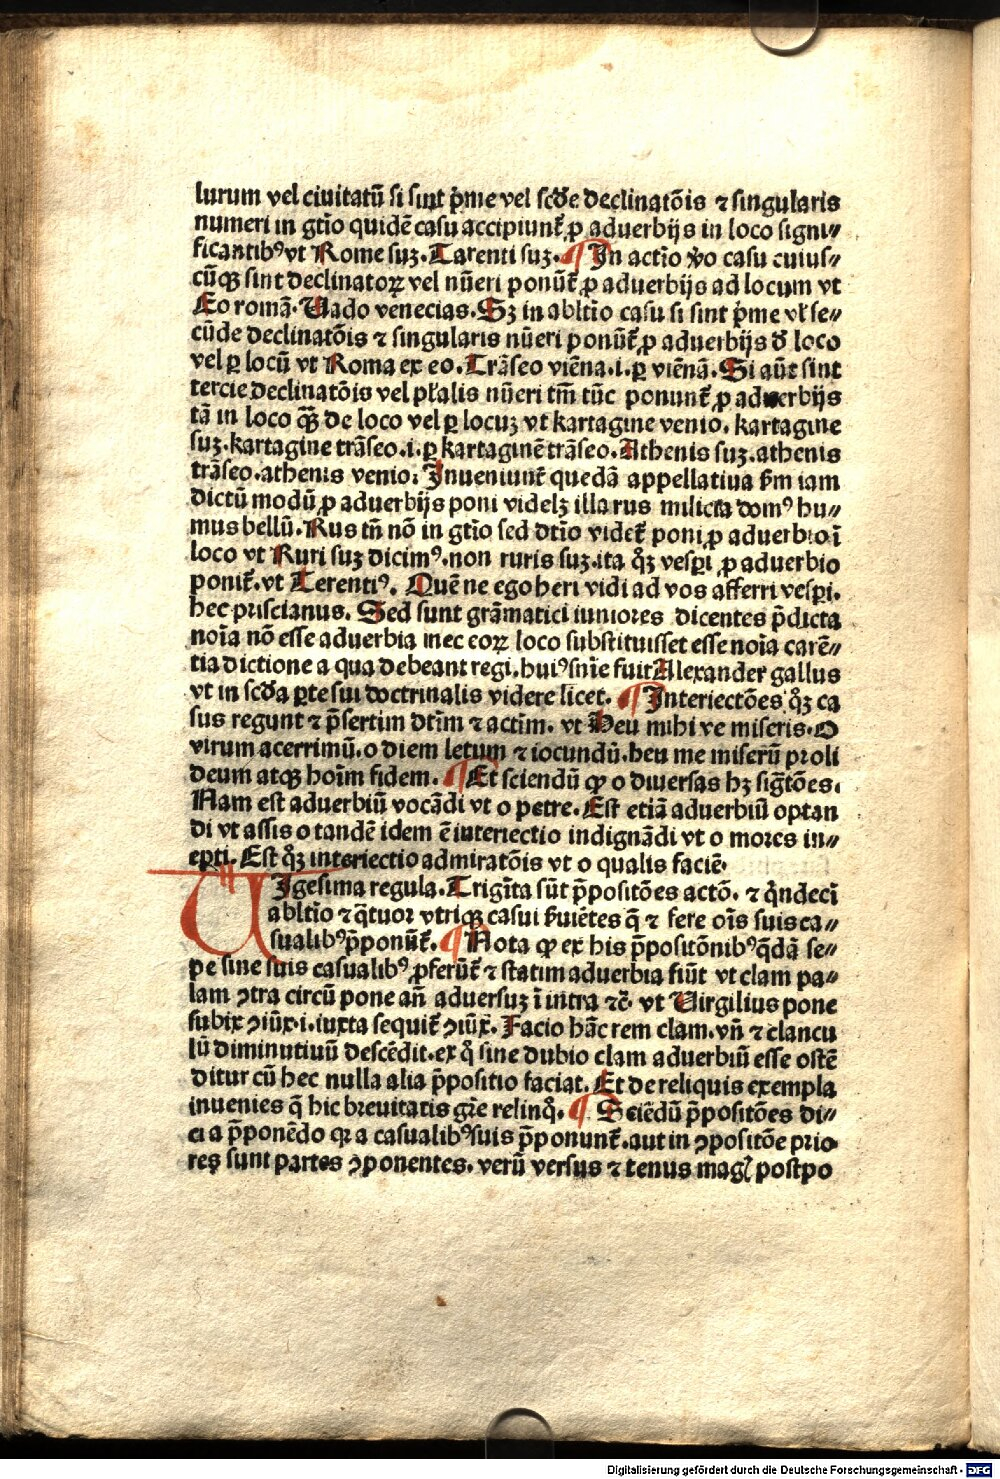 lurum vel ciuitatū si sint p̄me vel scd̄e declinatōis ⁊ singularis
numeri in gtīo quidē casu accipiunt̄ ꝓ aduerbijs in loco signi⸗
ficantibꝰ vt Rome suꝫ. Tarenti suꝫ. ¶ In actīo v̄o casu cuius⸗
cūqꝫ sint declinatoꝝ vel nūeri ponūt̄ ꝓ aduerbijs ad locum vt
Eo romā. Uado venecias. Sꝫ in abltīo casu si sint p̄me vl̄ se⸗
cūde declinatōis ⁊ singularis nūeri ponūt̄ ꝓ aduerbijs d̄ loco
vel ꝑ locū vt Roma ex eo. Trāseo viēna .i. ꝑ viēnā. Si aūt sint
tercie declinatōis vel pl̄alis nūeri tm̄ tūc ponunt̄ ꝓ aduerbijs
tā in loco qꝫ̄ de loco vel ꝑ locuꝫ vt kartagine venio. kartagine
suꝫ. kartagine trāseo .i. ꝑ kartaginē trāseo. Athenis suꝫ. athenis
trāseo. athenis venio: Inueniunt̄ quedā appellatiua sm̄ iam
dictū modū ꝓ aduerbijs poni videlꝫ illa rus milicia domꝰ hu⸗
mus bellū. Rus tn̄ nō in gtīo sed dtīo videt̄ poni ꝓ aduerbio ī
loco vt Ruri suꝫ dicimꝰ. non ruris suꝫ. ita qꝫ̊ vesꝑi ꝓ aduerbio
ponit̄. vt Terentiꝰ. Quē ne ego heri vidi ad vos afferri vesꝑi.
hec priscianus. Sed sunt grāmatici iuniores dicentes p̄dicta
noīa nō esse aduerbia nec eoꝝ loco substituisset esse noīa carē⸗
tia dictione a qua debeant regi. huiꝰ snīe fuit Alexander gallus
vt in scd̄a ꝑte sui doctrinalis videre licet. ¶ Interiectōes qꝫ̊ ca
sus regunt ⁊ p̄sertim dtīm ⁊ actīm. vt Heu mihi ve miseris. O
virum acerrimū. o diem letum ⁊ iocundū. heu me miserū pꝛoli
deum atqꝫ hoīm fidem. ¶ Et sciendū ꝙ o diuersas hꝫ sigt̄ōes.
Nam est aduerbiū vocādi vt o petre. Est etiā aduerbiū optan
di vt assis o tandē idem ē interiectio indignādi vt o mores in⸗
epti. Est qꝫ̊ interiectio admiratōis vt o qualis faciē.
UIgesima regula. Trigīta sūt p̄positōes actō. ⁊ q̇ndecī
abltīo ⁊ q̄tuor vtriqꝫ casui ẞuiētes q̄ ⁊ fere oīs suis ca⸗
sualibꝰ p̄ponūt̄. ¶ Nota ꝙ ex his p̄positōnibꝰ q̄dā se⸗
pe sine suis casualibꝰ ꝓferūt̄ ⁊ statim aduerbia fiūt vt clam pa⸗
lam ꝯtra circū pone an̄ aduersuꝫ ī intra ⁊c̄. vt Uirgilius pone
subix ꝯiūx .i. iuxta sequit̄ ꝯiūx. Facio hāc rem clam. vn̄ ⁊ clancu
lū diminutiuū descēdit. ex q̊ sine dubio clam aduerbiū esse ostē
ditur cū hec nulla alia p̄positio faciat. Et de reliquis exempla
inuenies q̄ hic breuitatis grē relinq̊. ¶ Sciēdū p̄positōes di⸗
ci a p̄ponēdo qꝛ a casualibꝰ suis p̄ponunt̄. aut in ꝯpositōe prio⸗
res sunt partes ꝯponentes. verū versus ⁊ tenus magꝭ postpo
Digitalisierung gefördert durch die Deutsche Forschungsgemeinschaft - DFG